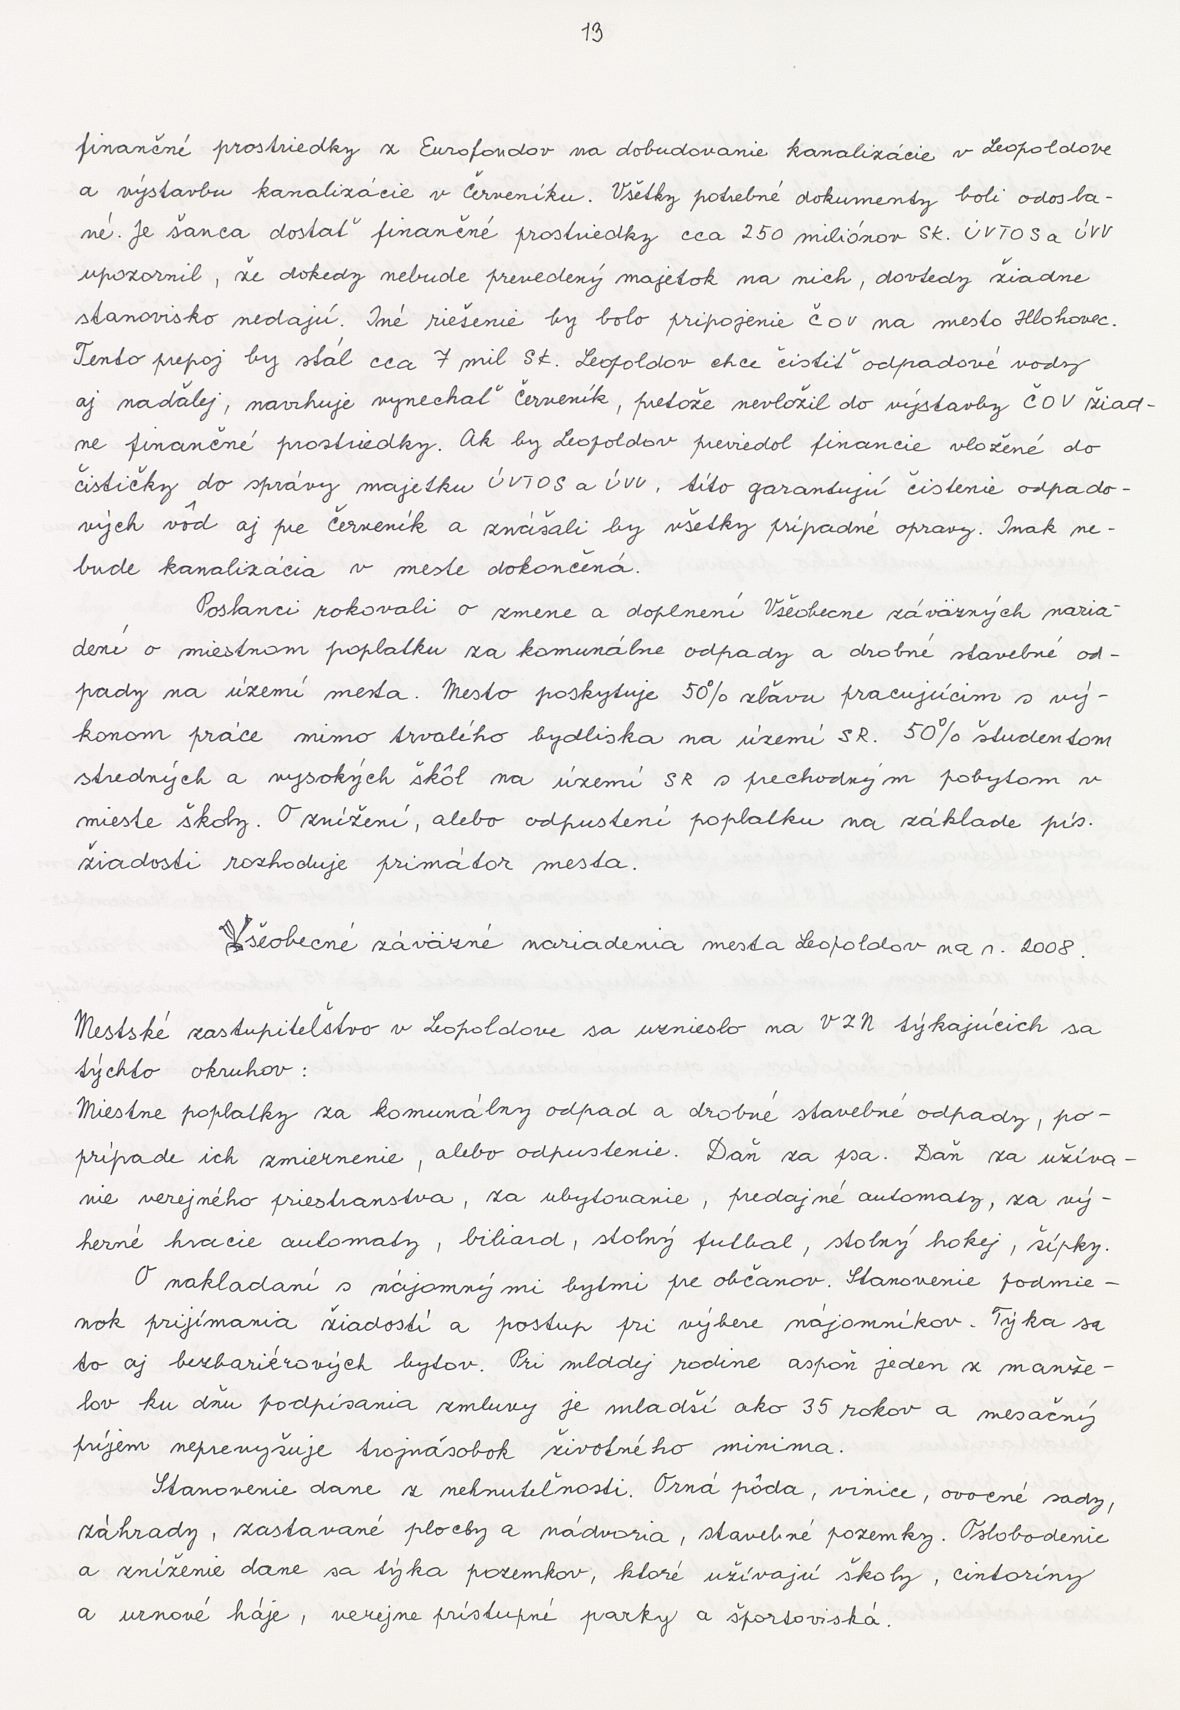 13
finančné prostriedky z Eurofondov na dobudovanie kanalizácie v Leopoldove
a výstavbu kanalizácie v Červeníku. Všetky potrebné dokumenty boli odosla-
né. Je šanca dostať finančné prostriedky cca 250 miliónov Sk. ÚVTOS a ÚVV
upozornil, že dokedy nebude prevedený majetok na nich, dovtedy žiadne
stanovisko nedajú. Iné riešenie by bolo pripojenie ČOV na mesto Hlohovec.
Tento prepoj by stál cca 7 mil Sk. Leopoldov chce čistiť odpadové vody
aj naďalej, navrhuje vynechať Červeník, pretože nevložil do výstavby ČOV žiad-
ne finančné prostriedky. Ak by Leopoldov previedol financie vložené do
čističky do správy majetku ÚVTOS a ÚVV, títo garantujú čistenie odpado-
vých vôd aj pre Červeník a znášali by všetky prípadné opravy. Inak ne-
bude kanalizácia v meste dokončená.
Poslanci rokovali o zmene a doplnení Všeobecne záväzných naria-
dení o miestnom poplatku za komunálne odpady a drobné stavebné od-
pady na území mesta. Mesto poskytuje 50% zľavu pracujúcim s vý-
konom práce mimo trvalého bydliska na území SR. 50% študentom
stredných a vysokých škôl na území SR s prechodným pobytom v
mieste školy. O znížení, alebo odpustení poplatku na základe pís.
žiadosti rozhoduje primátor mesta.
Všeobecné záväzné nariadenia mesta Leopoldov na r. 2008.
Mestské zastupiteľstvo v Leopoldove sa uznieslo na VZN týkajúcich sa
týchto okruhov:
Miestne poplatky za komunálny odpad a drobné stavebné odpady, po-
prípade ich zmiernenie, alebo odpustenie. Daň za psa. Daň za užíva-
nie verejného priestranstva, za ubytovanie, predajné automaty, za vý-
herné hracie automaty, biliard, stolný futbal, stolný hokej, šípky.
O nakladaní s nájomnými bytmi pre občanov. Stanovenie podmie-
nok prijímania žiadostí a postup pri výbere nájomníkov. Týka sa
to aj bezbariérových bytov. Pri mladej rodine aspoň jeden z manže-
lov ku dňu podpísania zmluvy je mladší ako 35 rokov a mesačný
príjem neprevyšuje trojnásobok životného minima.
Stanovenie dane z nehnuteľnosti. Orná pôda, vinice, ovocné sady,
záhrady, zastavané plochy a nádvoria, stavebné pozemky. Oslobodenie
a zníženie dane sa týka pozemkov, ktoré užívajú školy, cintoríny
a urnové háje, verejne prístupné parky a športoviská.